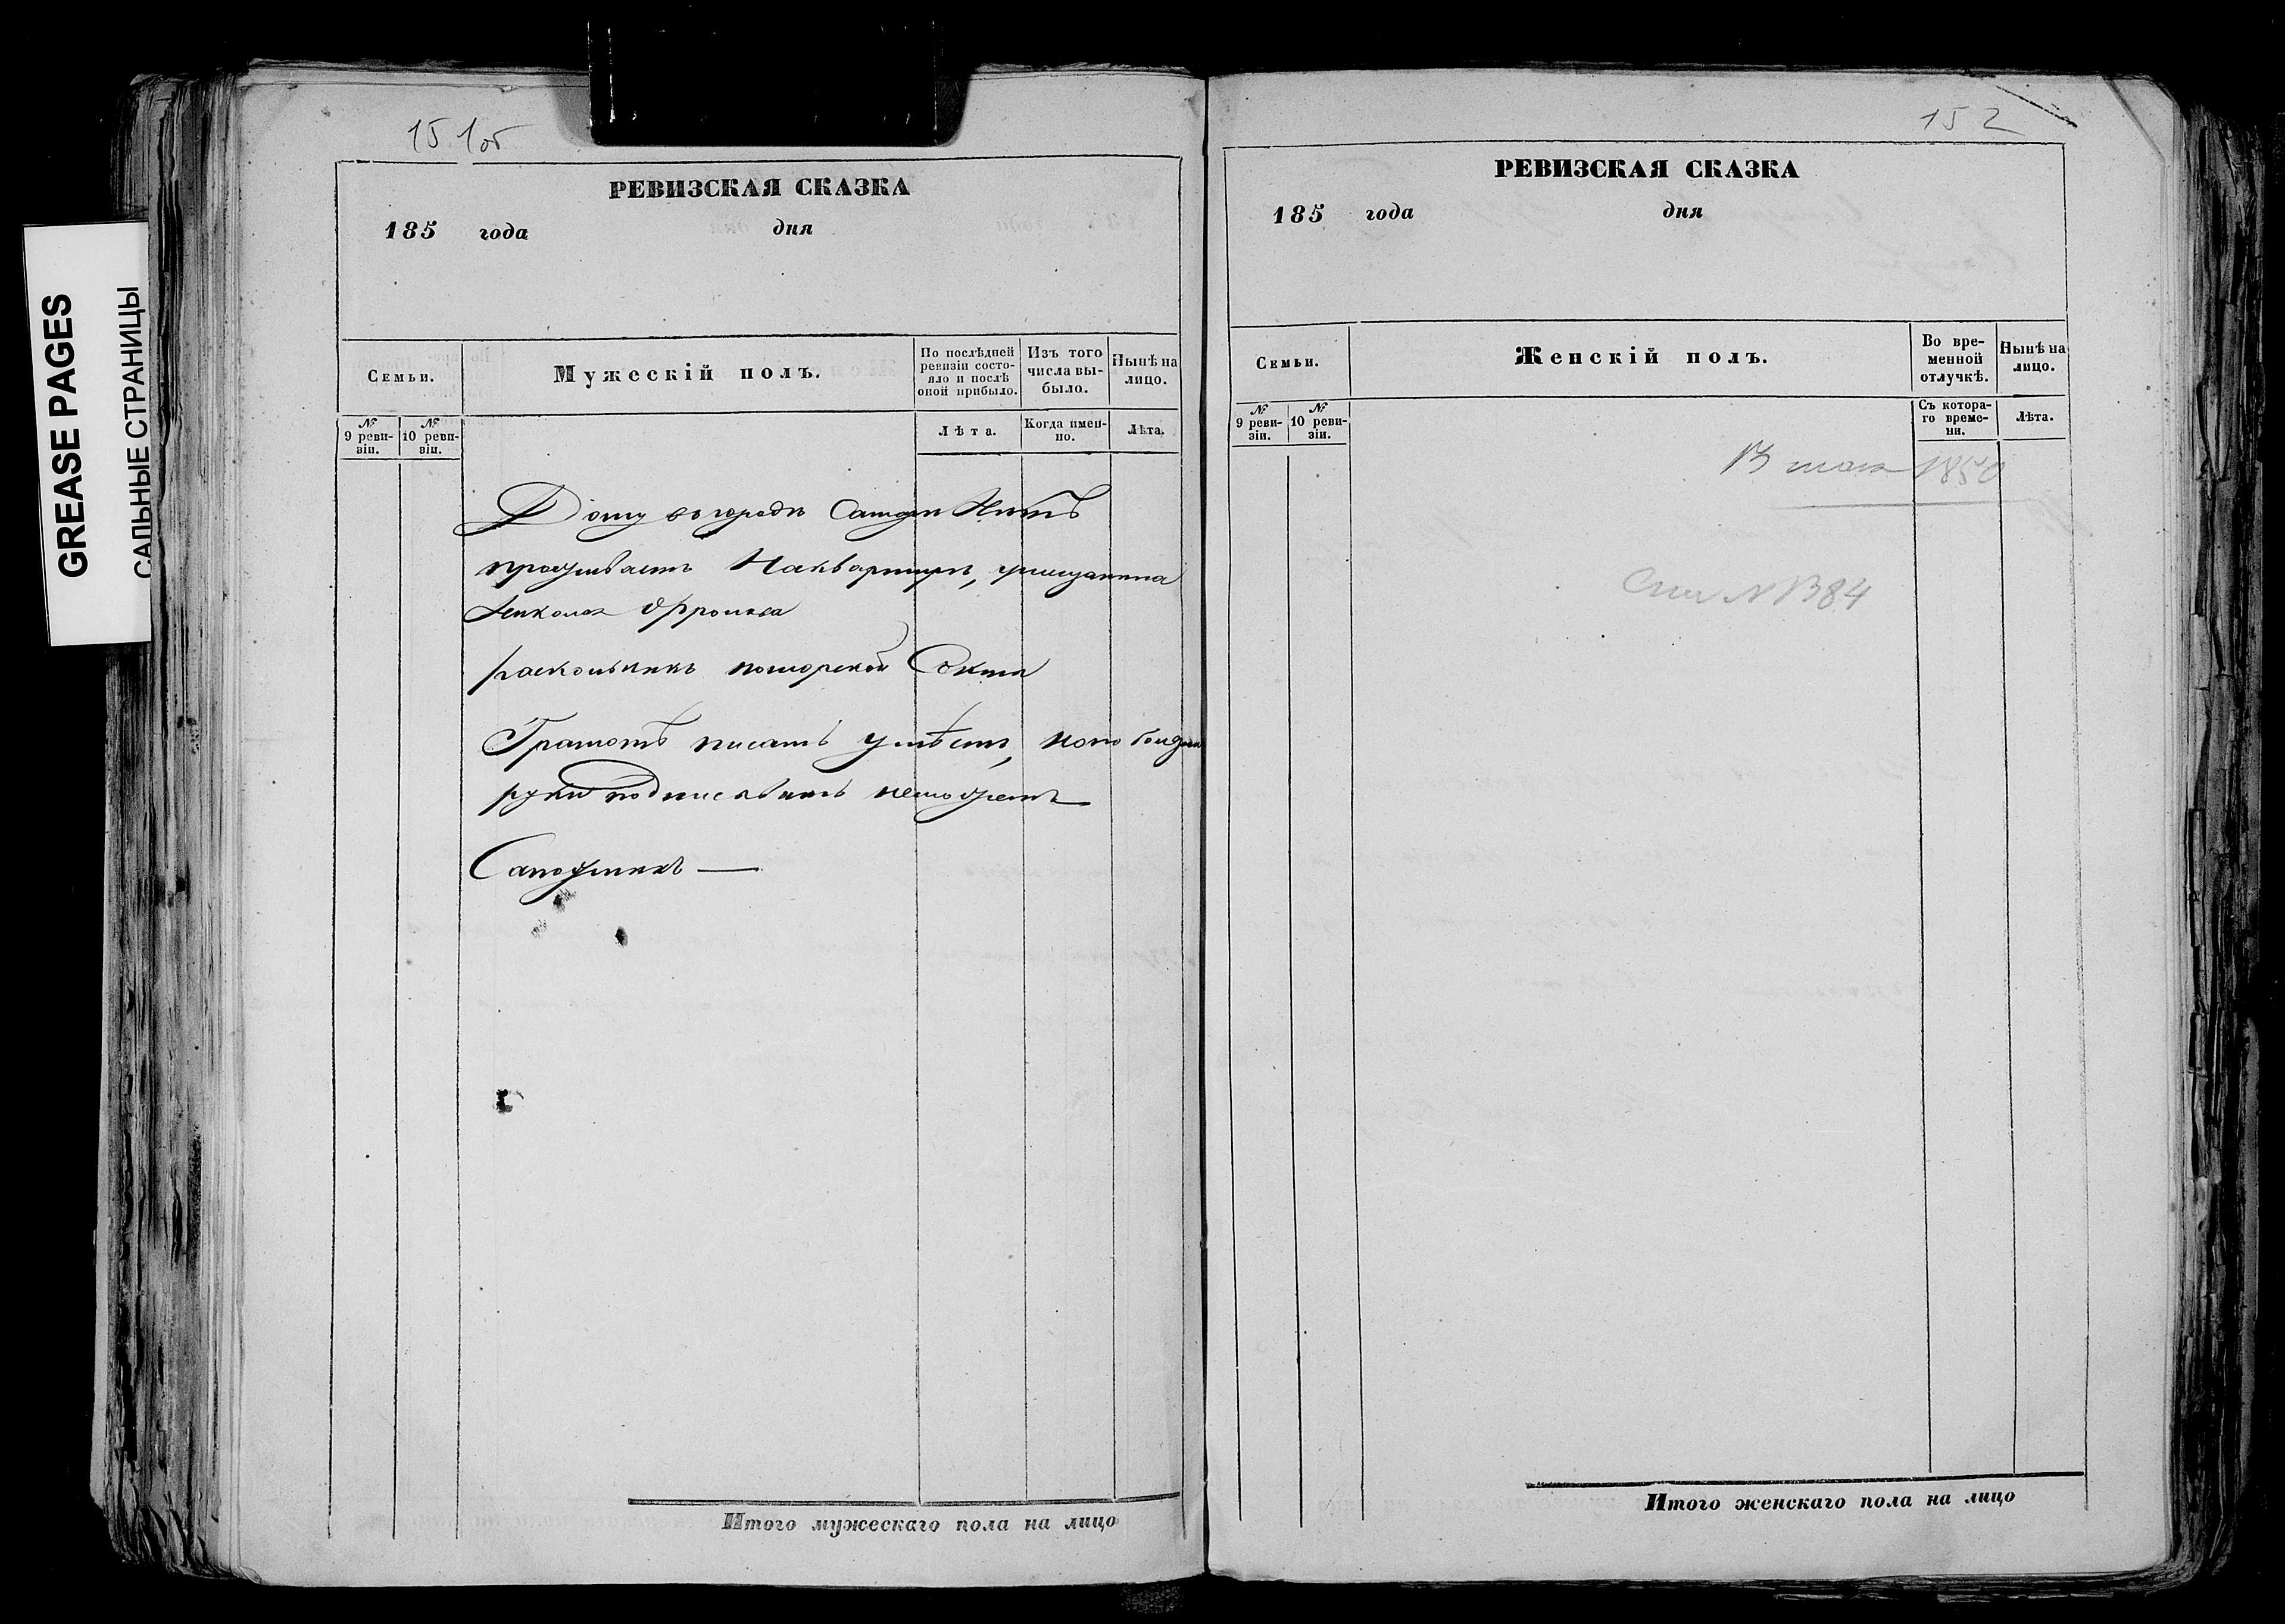 GREASE PAGES
САЛЬНЫЕ СТРАНИЦЫ
151об
РЕВИЗСКАЯ СКАЗКА
185 года дня
Семьи.
Мужескій полъ.
По послѣдней ревизіи состо-
яло и послѣ оной прибыло.
Изъ того числа вы-
было.
Нынѣ на лицо.
№ 9 реви-
зіи.
№ 10 реви-
зіи.
Лѣта.
Когда имен-
но.
Лѣта.
Дому въ городѣ Нѣтъ
проживаетъ На квартирѣ, умещанина
раскольникъ поморской Секты
Грамотѣ писать умѣетъ, но по болѣзни
руки подписывать неможетъ
Сапожникъ —
Итого мужескаго пола на лицо
152
РЕВИЗСКАЯ СКАЗКА
185 года дня
Семьи.
Женскій полъ.
Во вре-
менной отлучкѣ.
Нынѣ на лицо.
№ 9 реви-
зіи.
№ 10 реви-
зіи.
Съ котора-
го време-
ни.
Лѣта.
1850
№ 1384
Итого женскаго пола на лицо